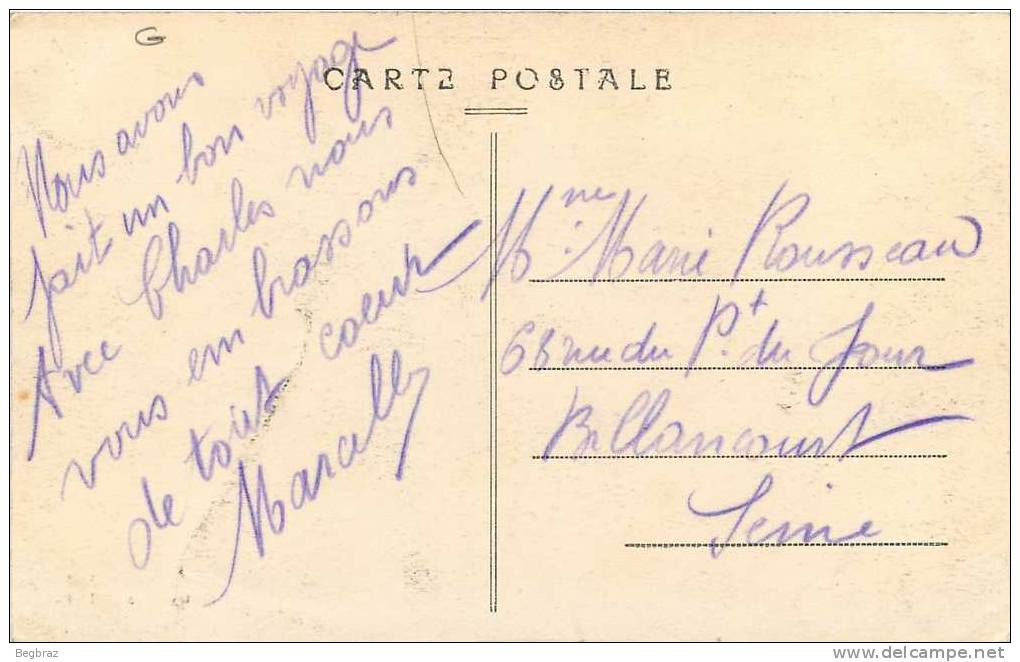 G
CARTE POSTALE
Nous avons
fait un bon voyage
Avec Charles nous
vous em brassons
de tout coeur
Marcelle
Mme Marie Rousseau
68 rue du Pt du Jour
Billancourt
Seine
Begbraz
delcampe.net